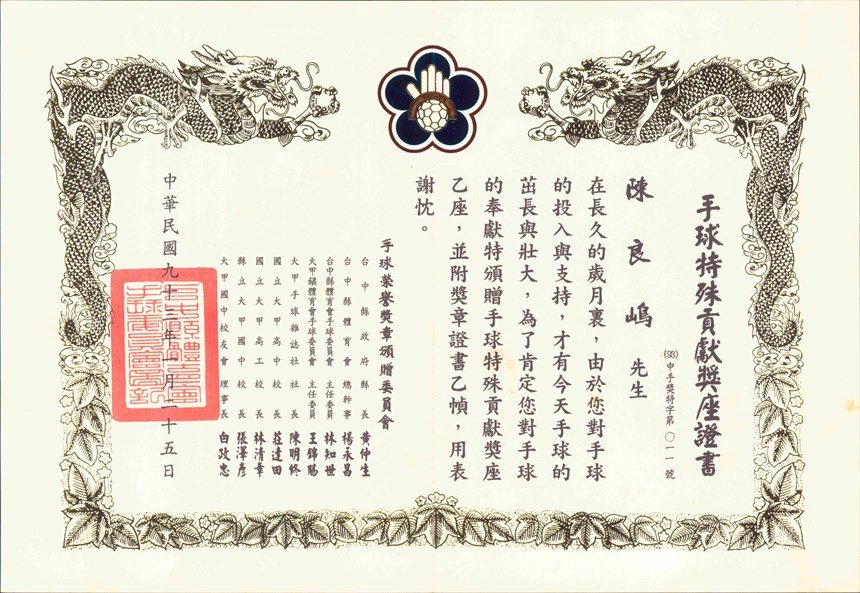 手球特殊貢獻獎座證書
(93)中手獎特字第〇一一號
陳良嶋 先生
在長久的歲月裏，由於您對手球
的投入與支持，才有今天手球的
茁長與壯大，為了肯定您對手球
的奉獻特頒贈手球特殊貢獻獎座
乙座，並附獎章證書乙幀，用表
謝忱。
手球榮譽獎章頒贈委員會
台中縣政府縣長 黃仲生
台中縣體育會總幹事 楊永昌
台中縣體育會手球委員會 主任委員 林知世
大甲鎮體育會手球委員會 主任委員 王錦賜
大甲手球雜誌社社長 陳明終
國立大甲高中校長 莊達田
國立大甲高工校長 林清章
縣立大甲國中校長 張澤彥
大甲國中校友會理事長 白政忠
中華民國九十三年一月二十五日